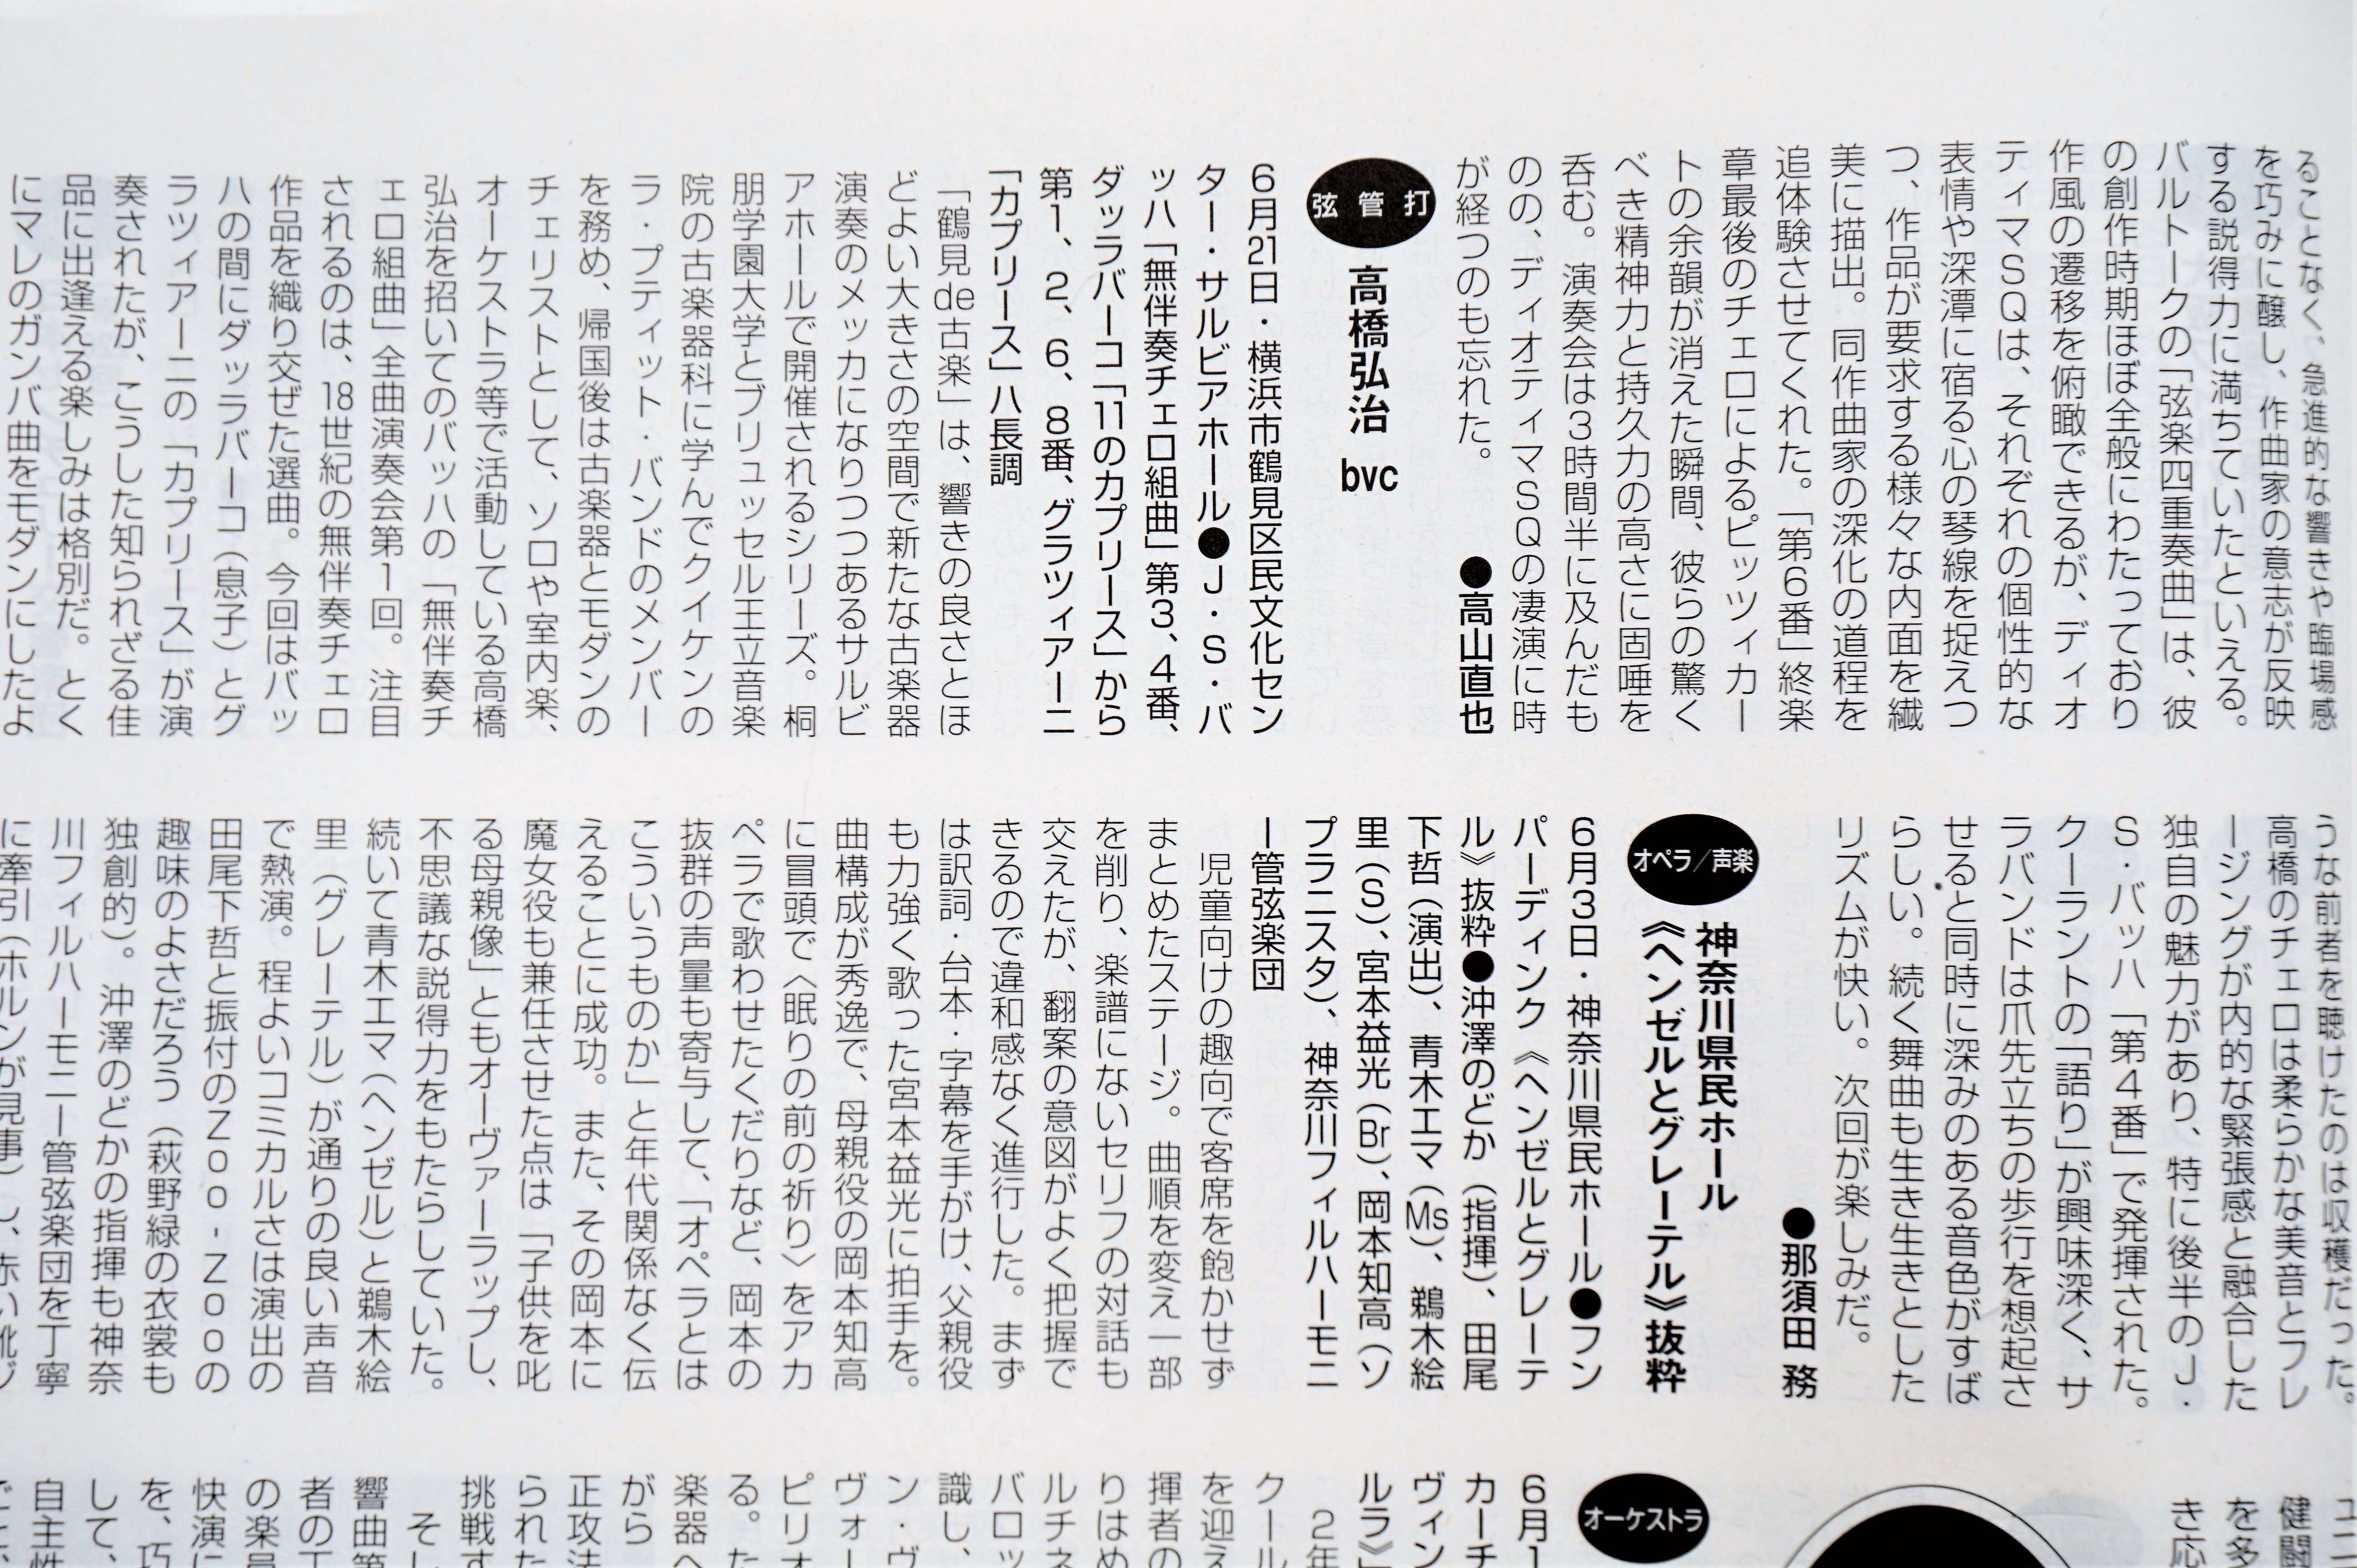 ることなく、急進的な響きや臨場感
を巧みに醸し、作曲家の意志が反映
する説得力に満ちていたといえる。
バルトークの「弦楽四重奏曲」は、彼
の創作時期ほぼ全般にわたっており
作風の遷移を俯瞰できるが、ディオ
ティマＳＱは、それぞれの個性的な
表情や深潭に宿る心の琴線を捉えつ
つ、作品が要求する様々な内面を繊
美に描出。同作曲家の深化の道程を
追体験させてくれた。「第６番」終楽
章最後のチェロによるピッツィカー
トの余韻が消えた瞬間、彼らの驚く
べき精神力と持久力の高さに固唾を
呑む。演奏会は３時間半に及んだも
のの、ディオティマＳＱの凄演に時
が経つのも忘れた。 ●高山直也
弦 管 打 高橋弘治 bvc
６月21日・横浜市鶴見区民文化セン
ター・サルビアホール●Ｊ・Ｓ・バ
ッハ「無伴奏チェロ組曲」第３、４番、
ダッラバーコ「11のカプリース」から
第１、２、６、８番、グラツィアーニ
「カプリース」ハ長調
「鶴見de古楽」は、響きの良さとほ
どよい大きさの空間で新たな古楽器
演奏のメッカになりつつあるサルビ
アホールで開催されるシリーズ。桐
朋学園大学とブリュッセル王立音楽
院の古楽器科に学んでクイケンの
ラ・プティット・バンドのメンバー
を務め、帰国後は古楽器とモダンの
チェリストとして、ソロや室内楽、
オーケストラ等で活動している高橋
弘治を招いてのバッハの「無伴奏チ
ェロ組曲」全曲演奏会第１回。注目
されるのは、18世紀の無伴奏チェロ
作品を織り交ぜた選曲。今回はバッ
ハの間にダッラバーコ（息子）とグ
ラツィアーニの「カプリース」が演
奏されたが、こうした知られざる佳
品に出逢える楽しみは格別だ。とく
にマレのガンバ曲をモダンにしたよ
うな前者を聴けたのは収穫だった。
高橋のチェロは柔らかな美音とフレ
ージングが内的な緊張感と融合した
独自の魅力があり、特に後半のＪ・
Ｓ・バッハ「第４番」で発揮された。
クーラントの「語り」が興味深く、サ
ラバンドは爪先立ちの歩行を想起さ
せると同時に深みのある音色がすば
らしい。続く舞曲も生き生きとした
リズムが快い。次回が楽しみだ。
●那須田 務
オペラ／声楽 神奈川県民ホール
《ヘンゼルとグレーテル》抜粋
６月３日・神奈川県民ホール●フン
パーディンク《ヘンゼルとグレーテ
ル》抜粋●沖澤のどか（指揮）、田尾
下哲（演出）、青木エマ（Ms）、鵜木絵
里（Ｓ）、宮本益光（Br）、岡本知高（ソ
プラニスタ）、神奈川フィルハーモニ
ー管弦楽団
児童向けの趣向で客席を飽かせず
まとめたステージ。曲順を変え一部
を削り、楽譜にないセリフの対話も
交えたが、翻案の意図がよく把握で
きるので違和感なく進行した。まず
は訳詞・台本・字幕を手がけ、父親役
も力強く歌った宮本益光に拍手を。
曲構成が秀逸で、母親役の岡本知高
に冒頭で〈眠りの前の祈り〉をアカ
ペラで歌わせたくだりなど、岡本の
抜群の声量も寄与して、「オペラとは
こういうものか」と年代関係なく伝
えることに成功。また、その岡本に
魔女役も兼任させた点は「子供を叱
る母親像」ともオーヴァーラップし、
不思議な説得力をもたらしていた。
続いて青木エマ（ヘンゼル）と鵜木絵
里（グレーテル）が通りの良い声音
で熱演。程よいコミカルさは演出の
田尾下哲と振付のＺｏｏ‐Ｚｏｏの
趣味のよさだろう（萩野緑の衣裳も
独創的）。沖澤のどかの指揮も神奈
川フィルハーモニー管弦楽団を丁寧
に牽引（ホルンが見事）し、赤い靴ジ
健闘
を多
き応
オーケストラ
６月１
カーチ
ヴィン
ルラ》
２年
クール
を迎え
揮者の
りはめ
ルチネ
バロッ
識し、
ン・ヴ
ヴォー
ピリオ
る。た
楽器へ
がら
正攻法
られた
挑戦す
そし
響曲第
者の
の楽員
快演に
を、巧
して、
自主性